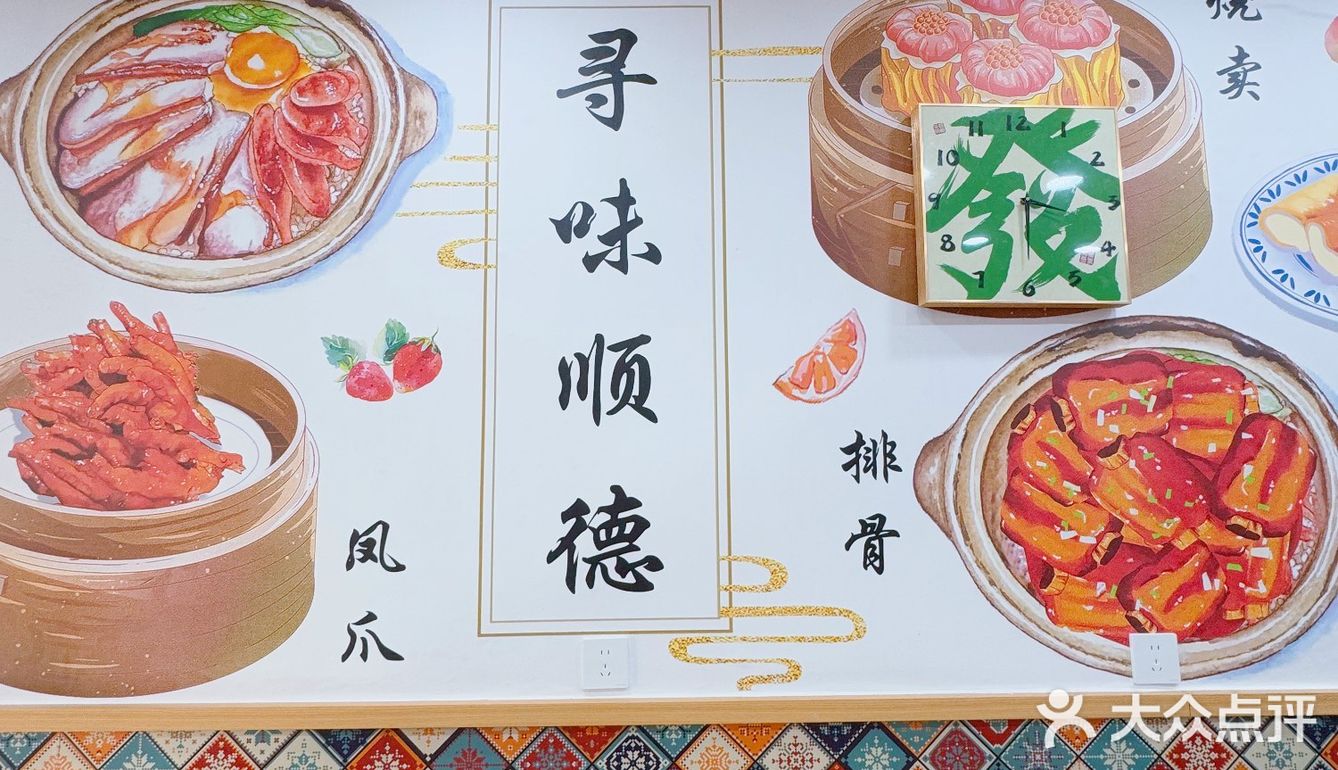 寻味顺德
烧卖
凤爪
排骨
發
11 12 1
10 2
9 3
8 4
7 6 5
大众点评